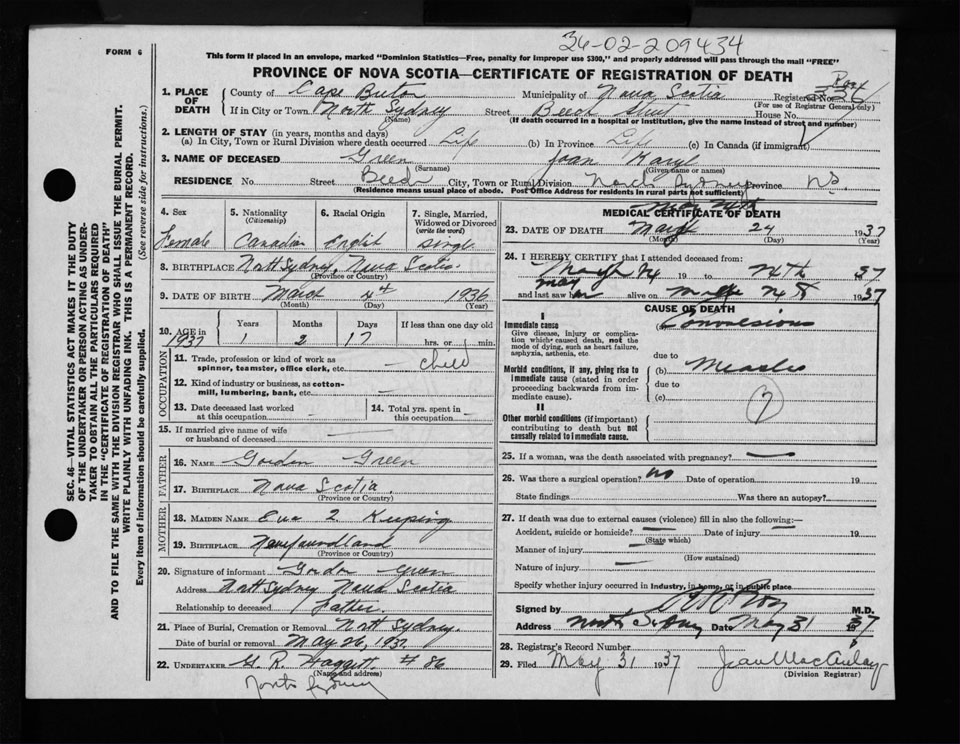 FORM 6
36-02-209434
This form if placed in an envelope, marked "Dominion Statistics—Free, penalty for improper use $300," and properly addressed will pass through the mail "FREE"
PROVINCE OF NOVA SCOTIA—CERTIFICATE OF REGISTRATION OF DEATH
1. PLACE OF DEATH County of Cape Breton Municipality of Nova Scotia Registered No.
(For use of Registrar General only)
If in City or Town North Sydney Street Beech Street House No.
(Name) (If death occurred in a hospital or institution, give the name instead of street and number)
2. LENGTH OF STAY (in years, months and days)
(a) In City, Town or Rural Division where death occurred Life (b) In Province Life (c) In Canada (if immigrant)
3. NAME OF DECEASED Green Joan
(Surname) (Given name or names)
RESIDENCE No. Street Beech City, Town or Rural Division North Sydney Province N.S.
(Residence means usual place of abode. Post Office Address for residents in rural parts not sufficient)
4. Sex Female
5. Nationality (Citizenship) Canadian
6. Racial Origin English
7. Single, Married, Widowed or Divorced (write the word) Single
8. BIRTHPLACE North Sydney, Nova Scotia
(Province or Country)
9. DATE OF BIRTH March 4th 1936
(Month) (Day) (Year)
10. AGE in 1937 Years 1 Months 2 Days 17 If less than one day old hrs. or min.
OCCUPATION
11. Trade, profession or kind of work as spinner, teamster, office clerk, etc. child
12. Kind of industry or business, as cotton-mill, lumbering, bank, etc.
13. Date deceased last worked at this occupation
14. Total yrs. spent in this occupation
15. If married give name of wife or husband of deceased
FATHER
16. NAME Gordon Green
17. BIRTHPLACE Nova Scotia.
(Province or Country)
MOTHER
18. MAIDEN NAME Eva Keeping
19. BIRTHPLACE Newfoundland
(Province or Country)
20. Signature of informant Gordon Green
Address North Sydney Nova Scotia
Relationship to deceased Father.
21. Place of Burial, Cremation or Removal North Sydney.
Date of burial or removal May 26, 1937
22. UNDERTAKER # 86
(Name and address)
North Sydney
MEDICAL CERTIFICATE OF DEATH
May 24th
23. DATE OF DEATH 24 1937
(Month) (Day) (Year)
24. I HEREBY CERTIFY that I attended deceased from:
19 to 24th 37
May
and last saw her alive on 1937
CAUSE OF DEATH
I
Immediate cause Convulsions
Give disease, injury or complication which caused death, not the mode of dying, such as heart failure, asphyxia, asthenia, etc.
due to
Morbid conditions, if any, giving rise to immediate cause (stated in order proceeding backwards from immediate cause).
(b) Measles
due to
(c)
7
II
Other morbid conditions (if important) contributing to death but not causally related to immediate cause.
25. If a woman, was the death associated with pregnancy?
26. Was there a surgical operation? no Date of operation 19
State findings Was there an autopsy?
27. If death was due to external causes (violence) fill in also the following:—
Accident, suicide or homicide? Date of injury 19
(State which)
Manner of injury
(How sustained)
Nature of injury
Specify whether injury occurred in Industry, in home, or in public place
Signed by M.D.
Address North Sydney Date May 31 1937
28. Registrar's Record Number
29. Filed May 31 1937 Jean MacAulay
(Division Registrar)
SEC. 46—VITAL STATISTICS ACT MAKES IT THE DUTY
OF THE UNDERTAKER OR PERSON ACTING AS UNDER-
TAKER TO OBTAIN ALL THE PARTICULARS REQUIRED
IN THE "CERTIFICATE OF REGISTRATION OF DEATH"
AND TO FILE THE SAME WITH THE DIVISION REGISTRAR WHO SHALL ISSUE THE BURIAL PERMIT.
WRITE PLAINLY WITH UNFADING INK. THIS IS A PERMANENT RECORD.
Every item of information should be carefully supplied. (See reverse side for instructions.)